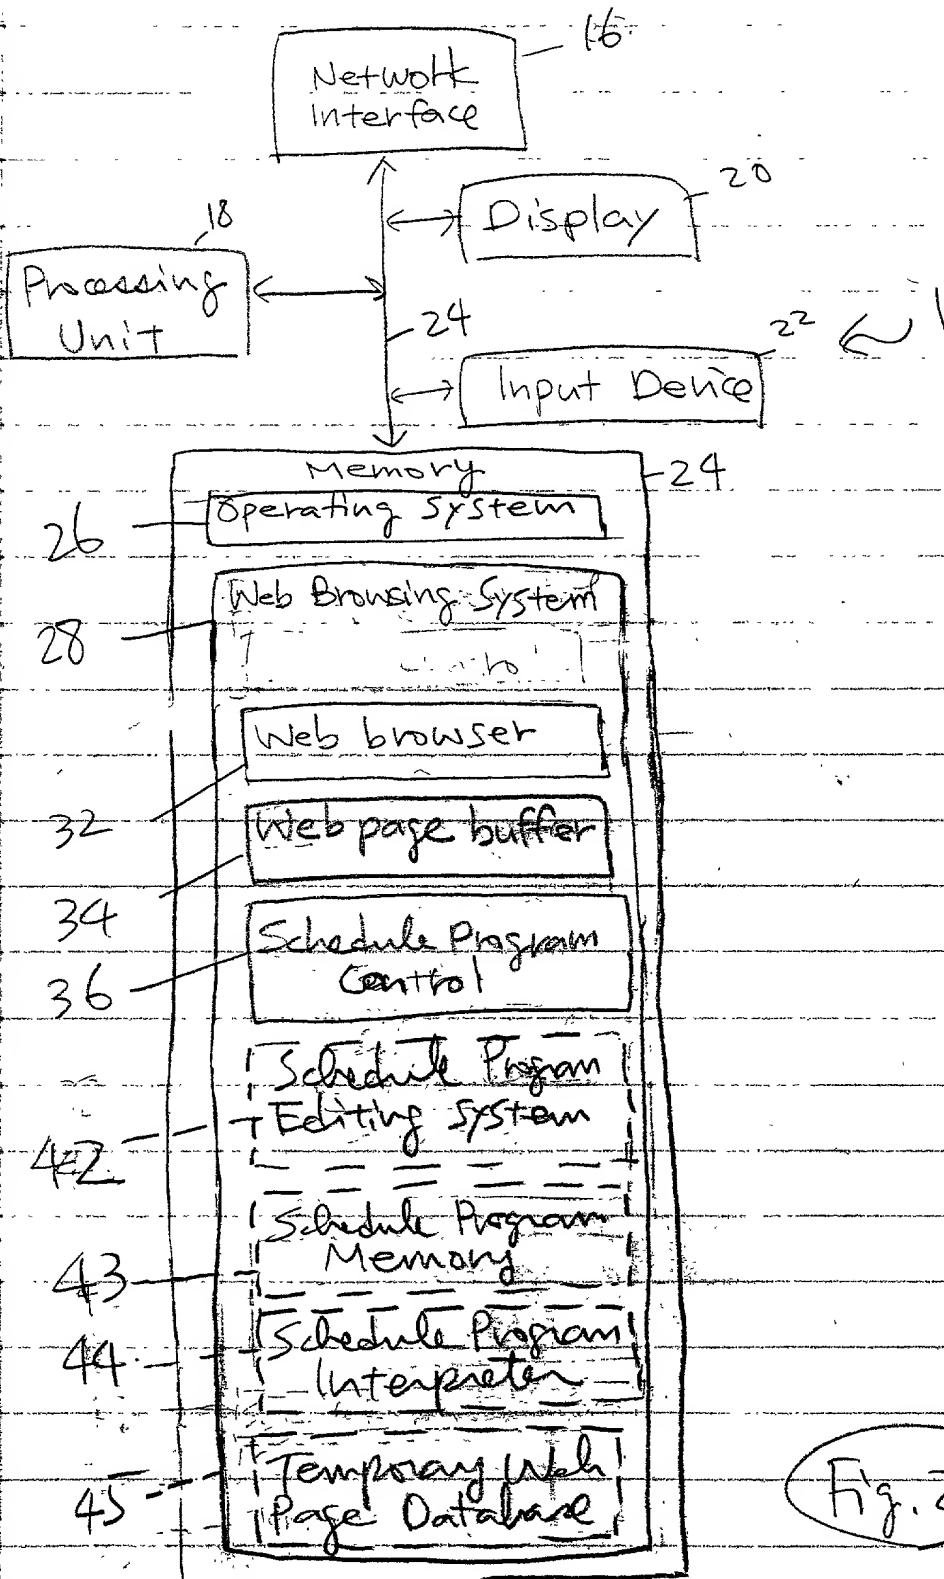 16
Network
Interface
20
Display
18
Processing
Unit
24
22
Input Device
Memory
24
Operating System
26
Web Browsing System
28
Web browser
32
Web page buffer
34
Schedule Program
Control
36
Schedule Program
Editing System
42
Schedule Program
Memory
43
Schedule Program
Interpreter
44
Temporay Web
Page Database
45
Fig.